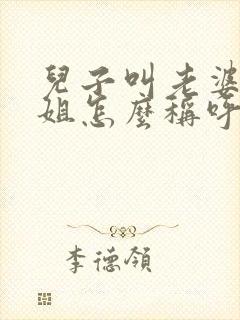 兒子叫老婆
姐怎麼稱呼
李德領